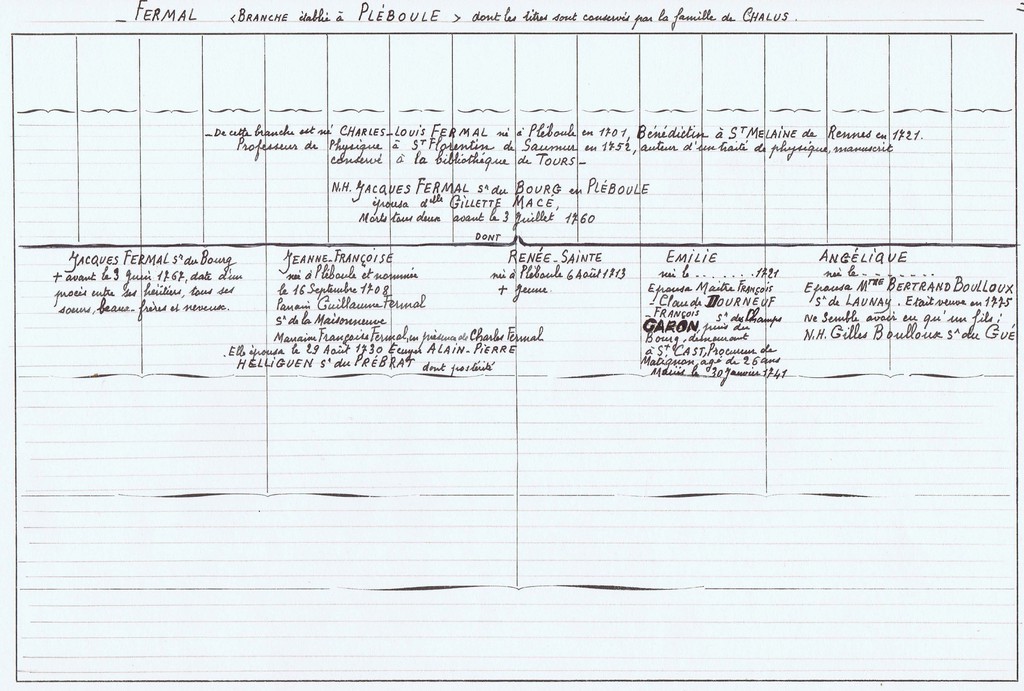 _ FERMAL <BRANCHE établie à PLÉBOULE > dont les titres sont conservés par la famille de CHALUS.
_De cette branche est né CHARLES_LOUIS FERMAL né à Pléboule en 1701, Bénédictin à ST MELAINE de Rennes en 1721.
Professeur de Physique à ST Florentin de Saumur en 1752, auteur d'un traité de physique, manuscrit
conservé à la bibliothèque de TOURS_
N.H. JACQUES FERMAL Sr du BOURG en PLÉBOULE
épousa delle GILLETTE MACÉ,
Morts tous deux avant le 3 Juillet 1760
DONT
JACQUES FERMAL Sr du Bourg
+ avant le 3 Juin 1767, date d'un
procès entre ses héritiers, tous ses
soeurs, beaux-frères et neveux.
JEANNE-FRANÇOISE
née à Pléboule et nommée
le 16 Septembre 1708
Parrain Guillaume Fermal
Sr de la Maisonneuve
Marraine Françoise Fermal, en présence de Charles Fermal
.Elle épousa le 29 Août 1730 Ecuyer ALAIN-PIERRE
HELLIGUEN Sr du PRÉBRAT dont postérité
RENÉE_SAINTE
née à Pléboule 6 Août 1713
+ jeune.
EMILIE
née le ........ 1721
Epousa Maître FRANÇOIS
Claude DOURNEUF
_FRANÇOIS
GARON Sr du Champs
puis du
Bourg, demeurant
à ST CAST, Procureur de
Matignon, agé de 26 ans
Mariés le 30 Janvier 1741
ANGÉLIQUE
née le ........
Epousa MTRE BERTRAND BOULLOUX
Sr de LAUNAY. Etait veuve en 1775
Ne semble avoir eu qu'un fils;
N.H. Gilles Boulloux Sr du GUÉ